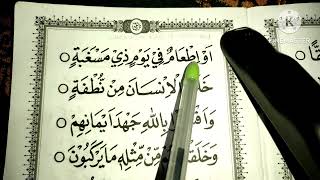 اَوْ اِطْعَامٌ فِيْ يَوْمٍ ذِيْ مَسْغَبَةٍ
الْاِنْسَانَ مِنْ نُطْفَةٍ
بِاللّٰهِ جَهْدَ اَيْمَانِهِمْ
وَخَلَقْنَا مِّنْ مِثْلِهٖ مَا يَرْكَبُوْنَ